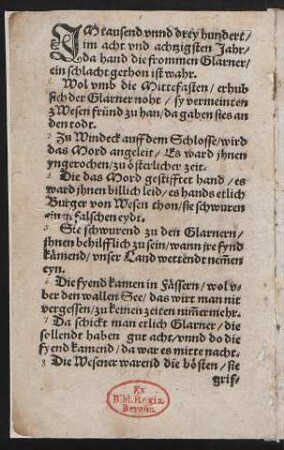 IM tausend vnnd drey hundert/
im acht vnd achtzigsten Jahr/
da hand die frommen Glarner/
ein schlacht gethon ist wahr.
Wol vmb die Mittefasten/ erhub
sich der Glarner noht / sy vermeinten
zWesen fründ zu han/da gaben sies an
den todt.
2 Zu Windeck auff dem Schlosse/wird
das Mord angeleit / Es ward jhnen
yngerochen/zu österlicher zeit.
Die das Mord gestifftet hand / es
ward jhnen billich leid/es hands etlich
Burger von Wesen thon/sie schwuren
einen falschen eydt.
Sie schwurend zu den Glarnern/
jhnen behilfflich zu sein/wann jre fynd
kämend/vnser Land wettendt nemmen
eyn.
Die fyend kamen in Fässern/wol v-
ber den wallen See/ das wirt man nit
vergessen/zu keinen zeiten nimmermehr.
7 Da schickt man etlich Glarner/die
sollendt haben gut acht/vnnd do die
fyend kamend/da war es mitte nacht.
8 Die Wesener warend die bösten/ sie
grif-
Ex
Bibl. Regia
Berolin.